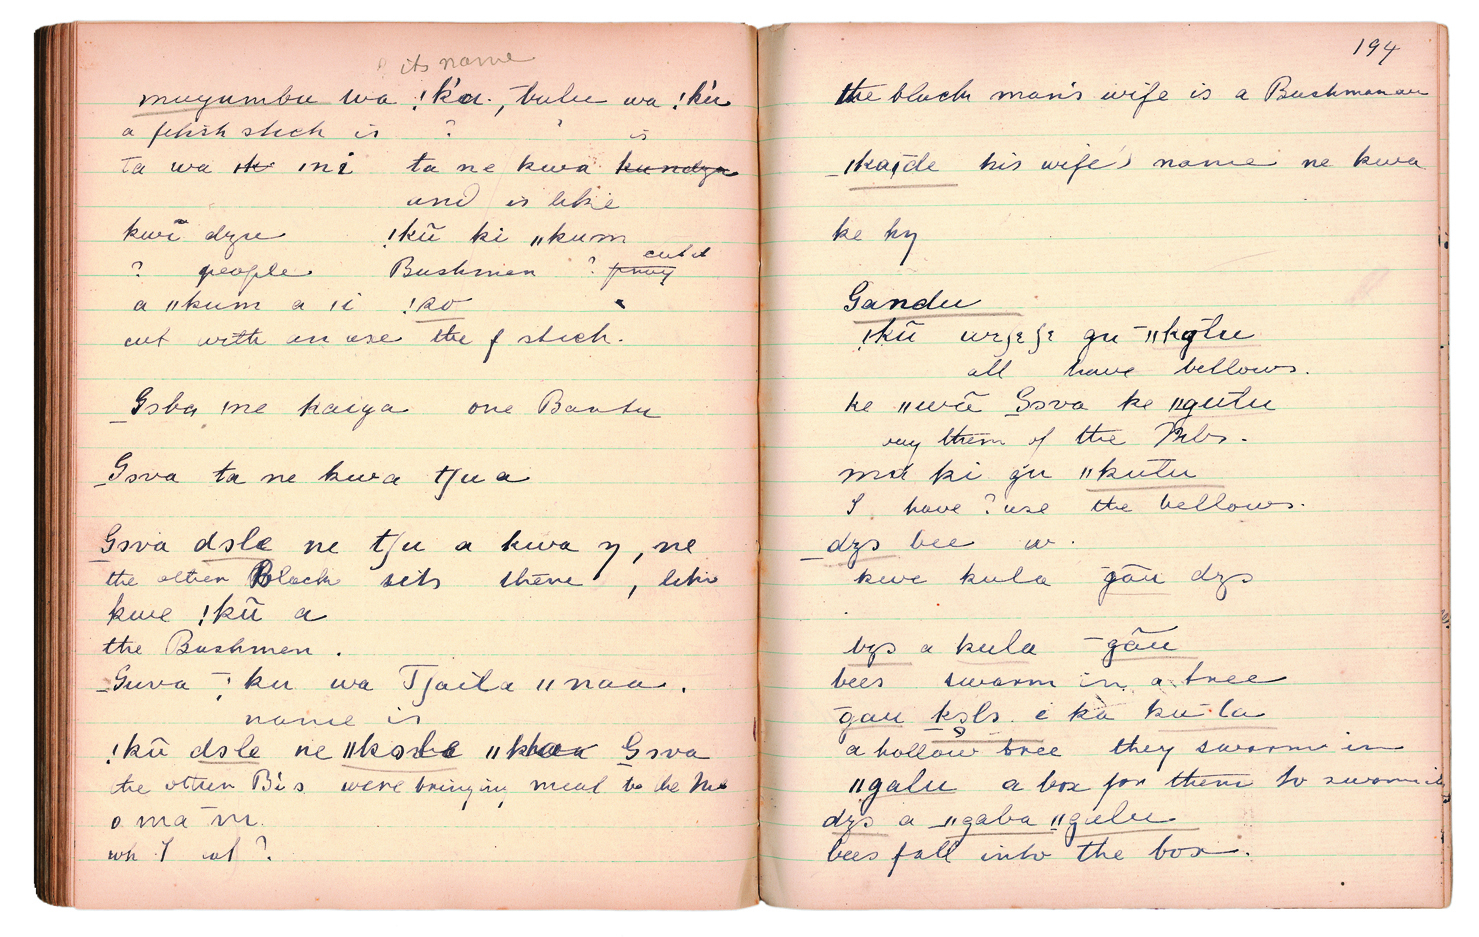 its name
muyumbu wa !k'a., tulu wa !k'u
a fetish stick is ? ? is
ta wa ıni ta ne kwa kundya
and is like
kwi dzu !kũ ki ıı kum
? people Bushmen ? cut it
a ıı kum a ıi !ko
cut with an axe the f stick.
Goba ıne kaiya one Bantu
Gova ta ne kwa tʃu a
Gova dole ne tʃu a kwa y, ne
the other Black sits there, like
kwe !kũ a
the Bushmen.
Guva !ku wa Tʃaila ıı naa.
name is
!kũ dole ne Gova
the other B's were bringing meal to the
o ma m.
wh I eat ?
194
the black man's wife is a Bushman
his wife's name ne kwa
ke ky
Gandu
!kũ gu
all have bellows.
ke ıı wã Gova ke ıı gutu
buy them of the Mbs.
ma ki gu ıı kutu
I have ? use the bellows.
dzo bee w.
kwe kula gãu dzo
dzo a kula gãu
bees swarm in a tree
gau kolo. e ka ku la
a hollow tree they swarm in
ıı galu a box for them to swarm in
dzo a ıı gaba ıı gulu
bees fall into the box.